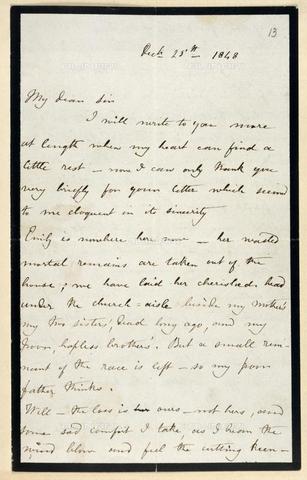 13
Decb 25th 1848
My dear Sir
I will write to you more
at length when my heart can find a
little rest - now I can only thank you
very briefly for your letter which seemed
to me eloquent in its sincerity
Emily is nowhere here now - her wasted
mortal remains are taken out of the
house; we have laid her cherished head
under the church-aisle beside my mother's
my two sisters', dead long ago, and my
poor, hapless brother's. But a small rem-
nant of the race is left - so my poor
father thinks.
Well - the loss is ours - not hers, and
some sad comfort I take, as I hear the
wind blow and feel the cutting keen-